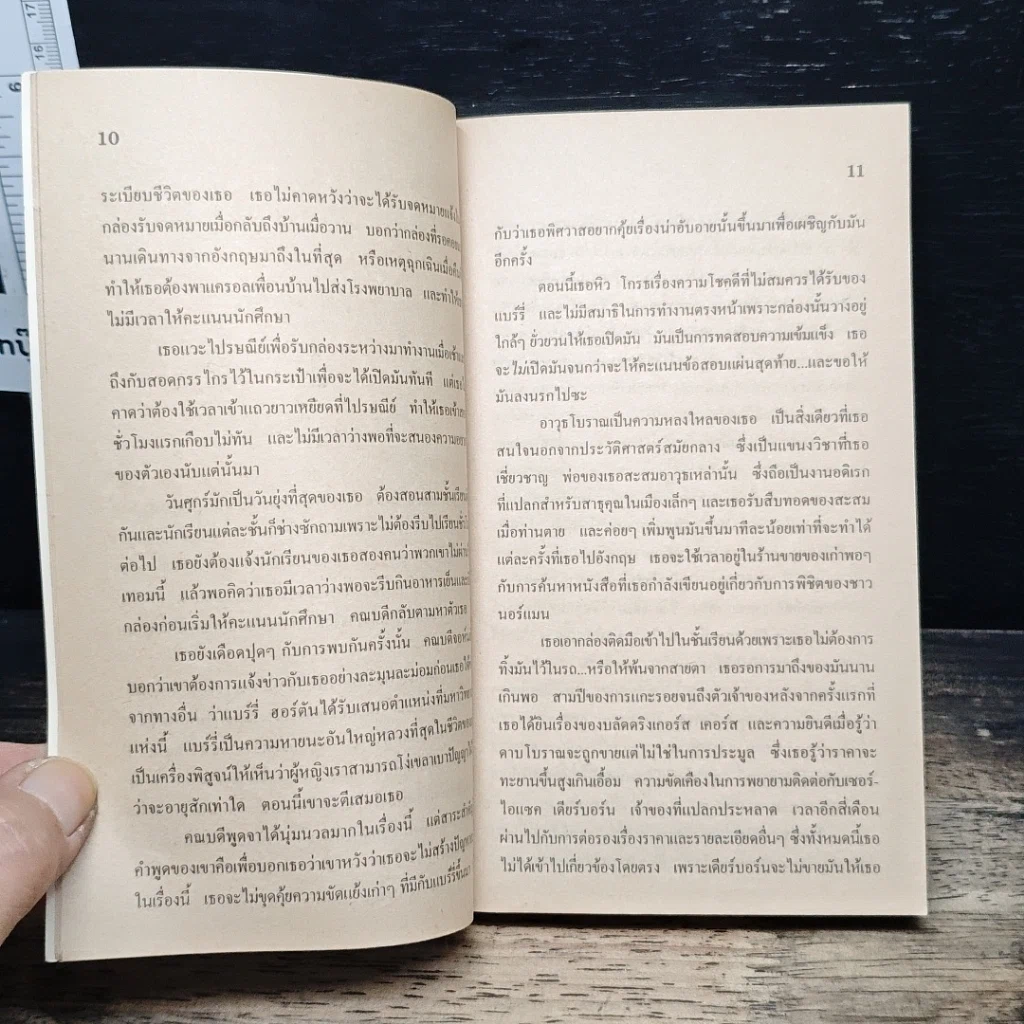 17
16
6
10
ระเบียบชีวิตของเธอ เธอไม่คาดหวังว่าจะได้รับจดหมายแจ้งใน
กล่องรับจดหมายเมื่อกลับถึงบ้านเมื่อวาน บอกว่ากล่องที่รอคอยมา
นานเดินทางจากอังกฤษมาถึงในที่สุด หรือเหตุฉุกเฉินเมื่อคืน
ทำให้เธอต้องพาแครอลเพื่อนบ้านไปส่งโรงพยาบาล และทำให้
ไม่มีเวลาให้คะแนนนักศึกษา
เธอแวะไปรษณีย์เพื่อรับกล่องระหว่างมาทำงานเมื่อเช้า
ถึงกับสอดกรรไกรไว้ในกระเป๋าเพื่อจะได้เปิดมันทันที แต่เธอ
คาดว่าต้องใช้เวลาเข้าแถวยาวเหยียดที่ไปรษณีย์ ทำให้เธอเข้า
ชั่วโมงแรกเกือบไม่ทัน และไม่มีเวลาว่างพอที่จะสนองความ
ของตัวเองนับแต่นั้นมา
วันศุกร์มักเป็นวันยุ่งที่สุดของเธอ ต้องสอนสามชั้นเรียน
กันและนักเรียนแต่ละชั้นก็ช่างซักถามเพราะไม่ต้องรีบไปเรียน
ต่อไป เธอยังต้องแจ้งนักเรียนของเธอสองคนว่าพวกเขาไม่ผ่าน
เทอมนี้ แล้วพอคิดว่าเธอมีเวลาว่างพอจะรีบกินอาหารเย็นและ
กล่องก่อนเริ่มให้คะแนนนักศึกษา คณบดีกลับตามหาตัวเธอ
เธอยังเดือดปุดๆ กับการพบกันครั้งนั้น คณบดี
บอกว่าเขาต้องการแจ้งข่าวกับเธออย่างละมุนละม่อมก่อนเธอ
จากทางอื่น ว่าแบร์รี่ ฮอร์ตันได้รับเสนอตำแหน่งที่
แห่งนี้ แบร์รี่เป็นความหายนะอันใหญ่หลวงที่สุดในชีวิต
เป็นเครื่องพิสูจน์ให้เห็นว่าผู้หญิงเราสามารถโง่เขลาเบาปัญญา
ว่าจะอายุสักเท่าใด ตอนนี้เขาจะตีเสมอเธอ
คณบดีพูดจาได้นุ่มนวลมากในเรื่องนี้ แต่สาระสำคัญ
คำพูดของเขาคือเพื่อบอกเธอว่าเขาหวังว่าเธอจะไม่สร้าง
ในเรื่องนี้ เธอจะไม่ขุดคุ้ยความขัดแย้งเก่าๆ ที่มีกับแบร์รี่ขึ้นมา
11
กับว่าเธอพิศวาสอยากคุ้ยเรื่องน่าอับอายนั้นขึ้นมาเพื่อเผชิญกับมัน
อีกครั้ง
ตอนนี้เธอหิว โกรธเรื่องความโชคดีที่ไม่สมควรได้รับของ
แบร์รี่ และไม่มีสมาธิในการทำงานตรงหน้าเพราะกล่องนั้นวางอยู่
ใกล้ๆ ยั่วยวนให้เธอเปิดมัน มันเป็นการทดสอบความเข้มแข็ง เธอ
จะไม่เปิดมันจนกว่าจะให้คะแนนข้อสอบแผ่นสุดท้าย...และขอให้
มันลงนรกไปซะ
อาวุธโบราณเป็นความหลงใหลของเธอ เป็นสิ่งเดียวที่เธอ
สนใจนอกจากประวัติศาสตร์สมัยกลาง ซึ่งเป็นแขนงวิชาที่เธอ
เชี่ยวชาญ พ่อของเธอสะสมอาวุธเหล่านั้น ซึ่งถือเป็นงานอดิเรก
ที่แปลกสำหรับสาธุคุณในเมืองเล็กๆ และเธอรับสืบทอดของสะสม
เมื่อท่านตาย และค่อยๆ เพิ่มพูนมันขึ้นมาทีละน้อยเท่าที่จะทำได้
แต่ละครั้งที่เธอไปอังกฤษ เธอจะใช้เวลาอยู่ในร้านขายของเก่าพอๆ
กับการค้นหาหนังสือที่เธอกำลังเขียนอยู่เกี่ยวกับการพิชิตของชาว
นอร์แมน
เธอเอากล่องติดมือเข้าไปในชั้นเรียนด้วยเพราะเธอไม่ต้องการ
ทิ้งมันไว้ในรถ...หรือให้พ้นจากสายตา เธอรอการมาถึงของมันนาน
เกินพอ สามปีของการแกะรอยจนถึงตัวเจ้าของหลังจากครั้งแรกที่
เธอได้ยินเรื่องของบลัดดริงเกอร์ส เคอร์ส และความยินดีเมื่อรู้ว่า
ดาบโบราณจะถูกขายแต่ไม่ใช่ในการประมูล ซึ่งเธอรู้ว่าราคาจะ
ทะยานขึ้นสูงเกินเอื้อม ความขัดเคืองในการพยายามติดต่อกับเซอร์-
ไอแซค เดียร์บอร์น เจ้าของที่แปลกประหลาด เวลาอีกสี่เดือน
ผ่านไปกับการต่อรองเรื่องราคาและรายละเอียดอื่นๆ ซึ่งทั้งหมดนี้เธอ
ไม่ได้เข้าไปเกี่ยวข้องโดยตรง เพราะเดียร์บอร์นจะไม่ขายมันให้เธอ